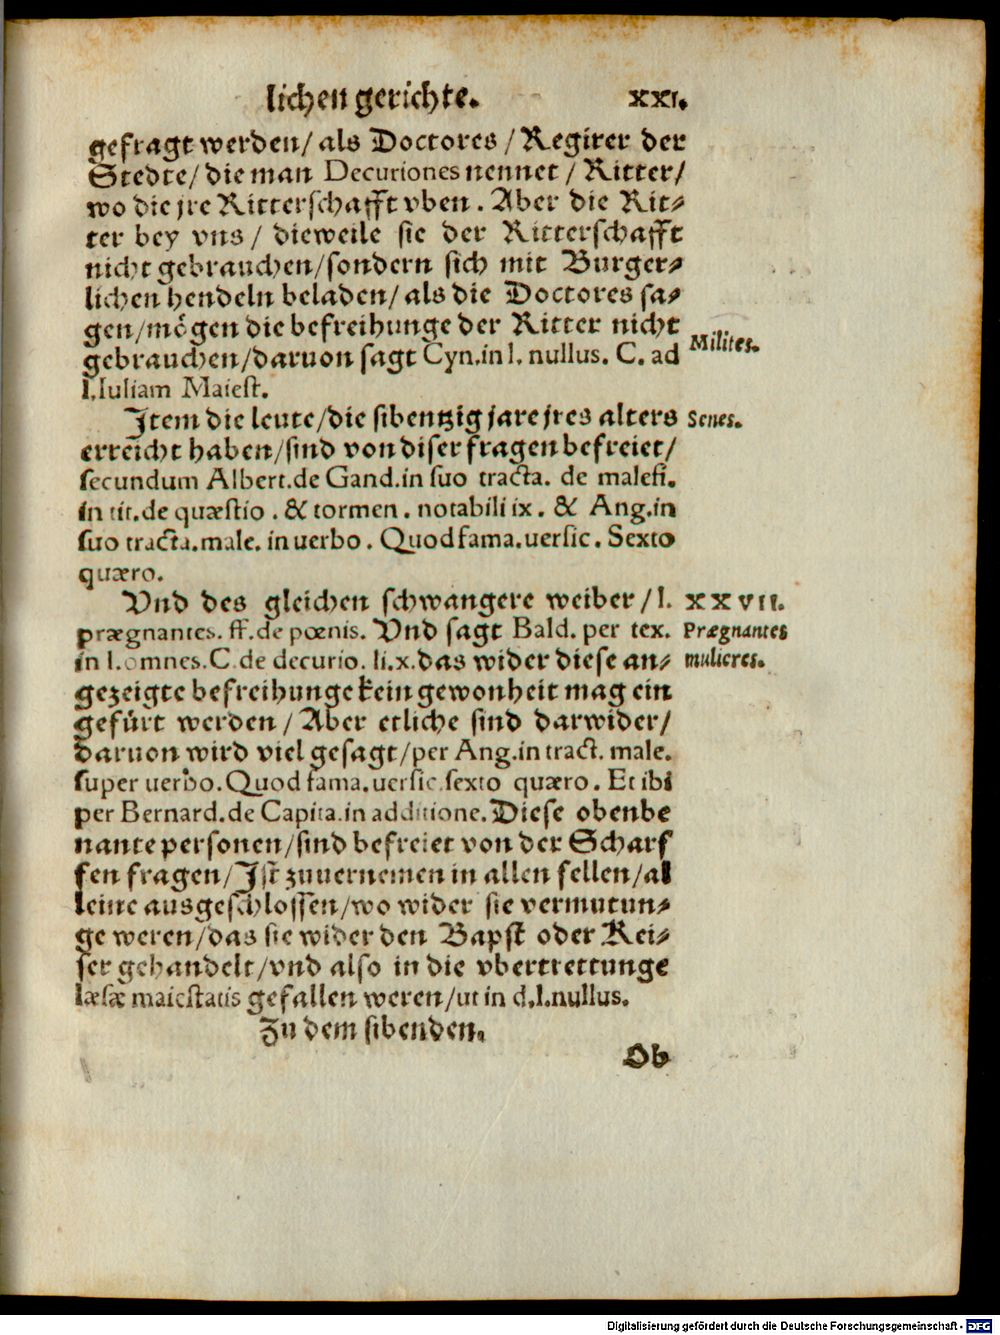 lichen gerichte. XXI.
gefragt werden/ als Doctores / Regirer der
Stedte/ die man Decuriones nennet / Ritter/
wo die jre Ritterschafft vben . Aber die Rit⸗
ter bey vns / dieweile sie der Ritterschafft
nicht gebrauchen/sondern sich mit Burger⸗
lichen hendeln beladen/ als die Doctores sa⸗
gen/mögen die befreihunge der Ritter nicht
gebrauchen/daruon sagt Cyn.in l. nullus. C. ad
l.Iuliam Maiest.
Milites.
Jtem die leute/die sibentzig jare jres alters
erreicht haben/sind von diser fragen befreiet/
secundum Albert.de Gand.in suo tracta. de malefi.
in tit.de quæstio . & tormen . notabili ix . & Ang.in
suo tracta.male. in uerbo . Quod fama.uersic . Sexto
quæro.
Senes.
Vnd des gleichen schwangere weiber/ l.
prægnantes. ff.de pœnis. Vnd sagt Bald. per tex.
in l.omnes.C.de decurio. li.x.das wider diese an⸗
gezeigte befreihunge kein gewonheit mag ein
gefürt werden / Aber etliche sind darwider/
daruon wird viel gesagt/per Ang.in tract. male.
super uerbo.Quod fama.uersic.sexto quæro . Et ibi
per Bernard.de Capita.in additione.Diese obenbe
nante personen/sind befreiet von der Scharf
fen fragen/Jst zuuernemen in allen fellen/al
leine ausgeschlossen/wo wider sie vermutun⸗
ge weren/das sie wider den Bapst oder Kei⸗
ser gehandelt/vnd also in die vbertrettunge
læsæ maiestatis gefallen weren/ut in d.l.nullus.
XXVII.
Prægnantes
mulieres.
Zu dem sibenden.
Ob
Digitalisierung gefördert durch die Deutsche Forschungsgemeinschaft - DFG